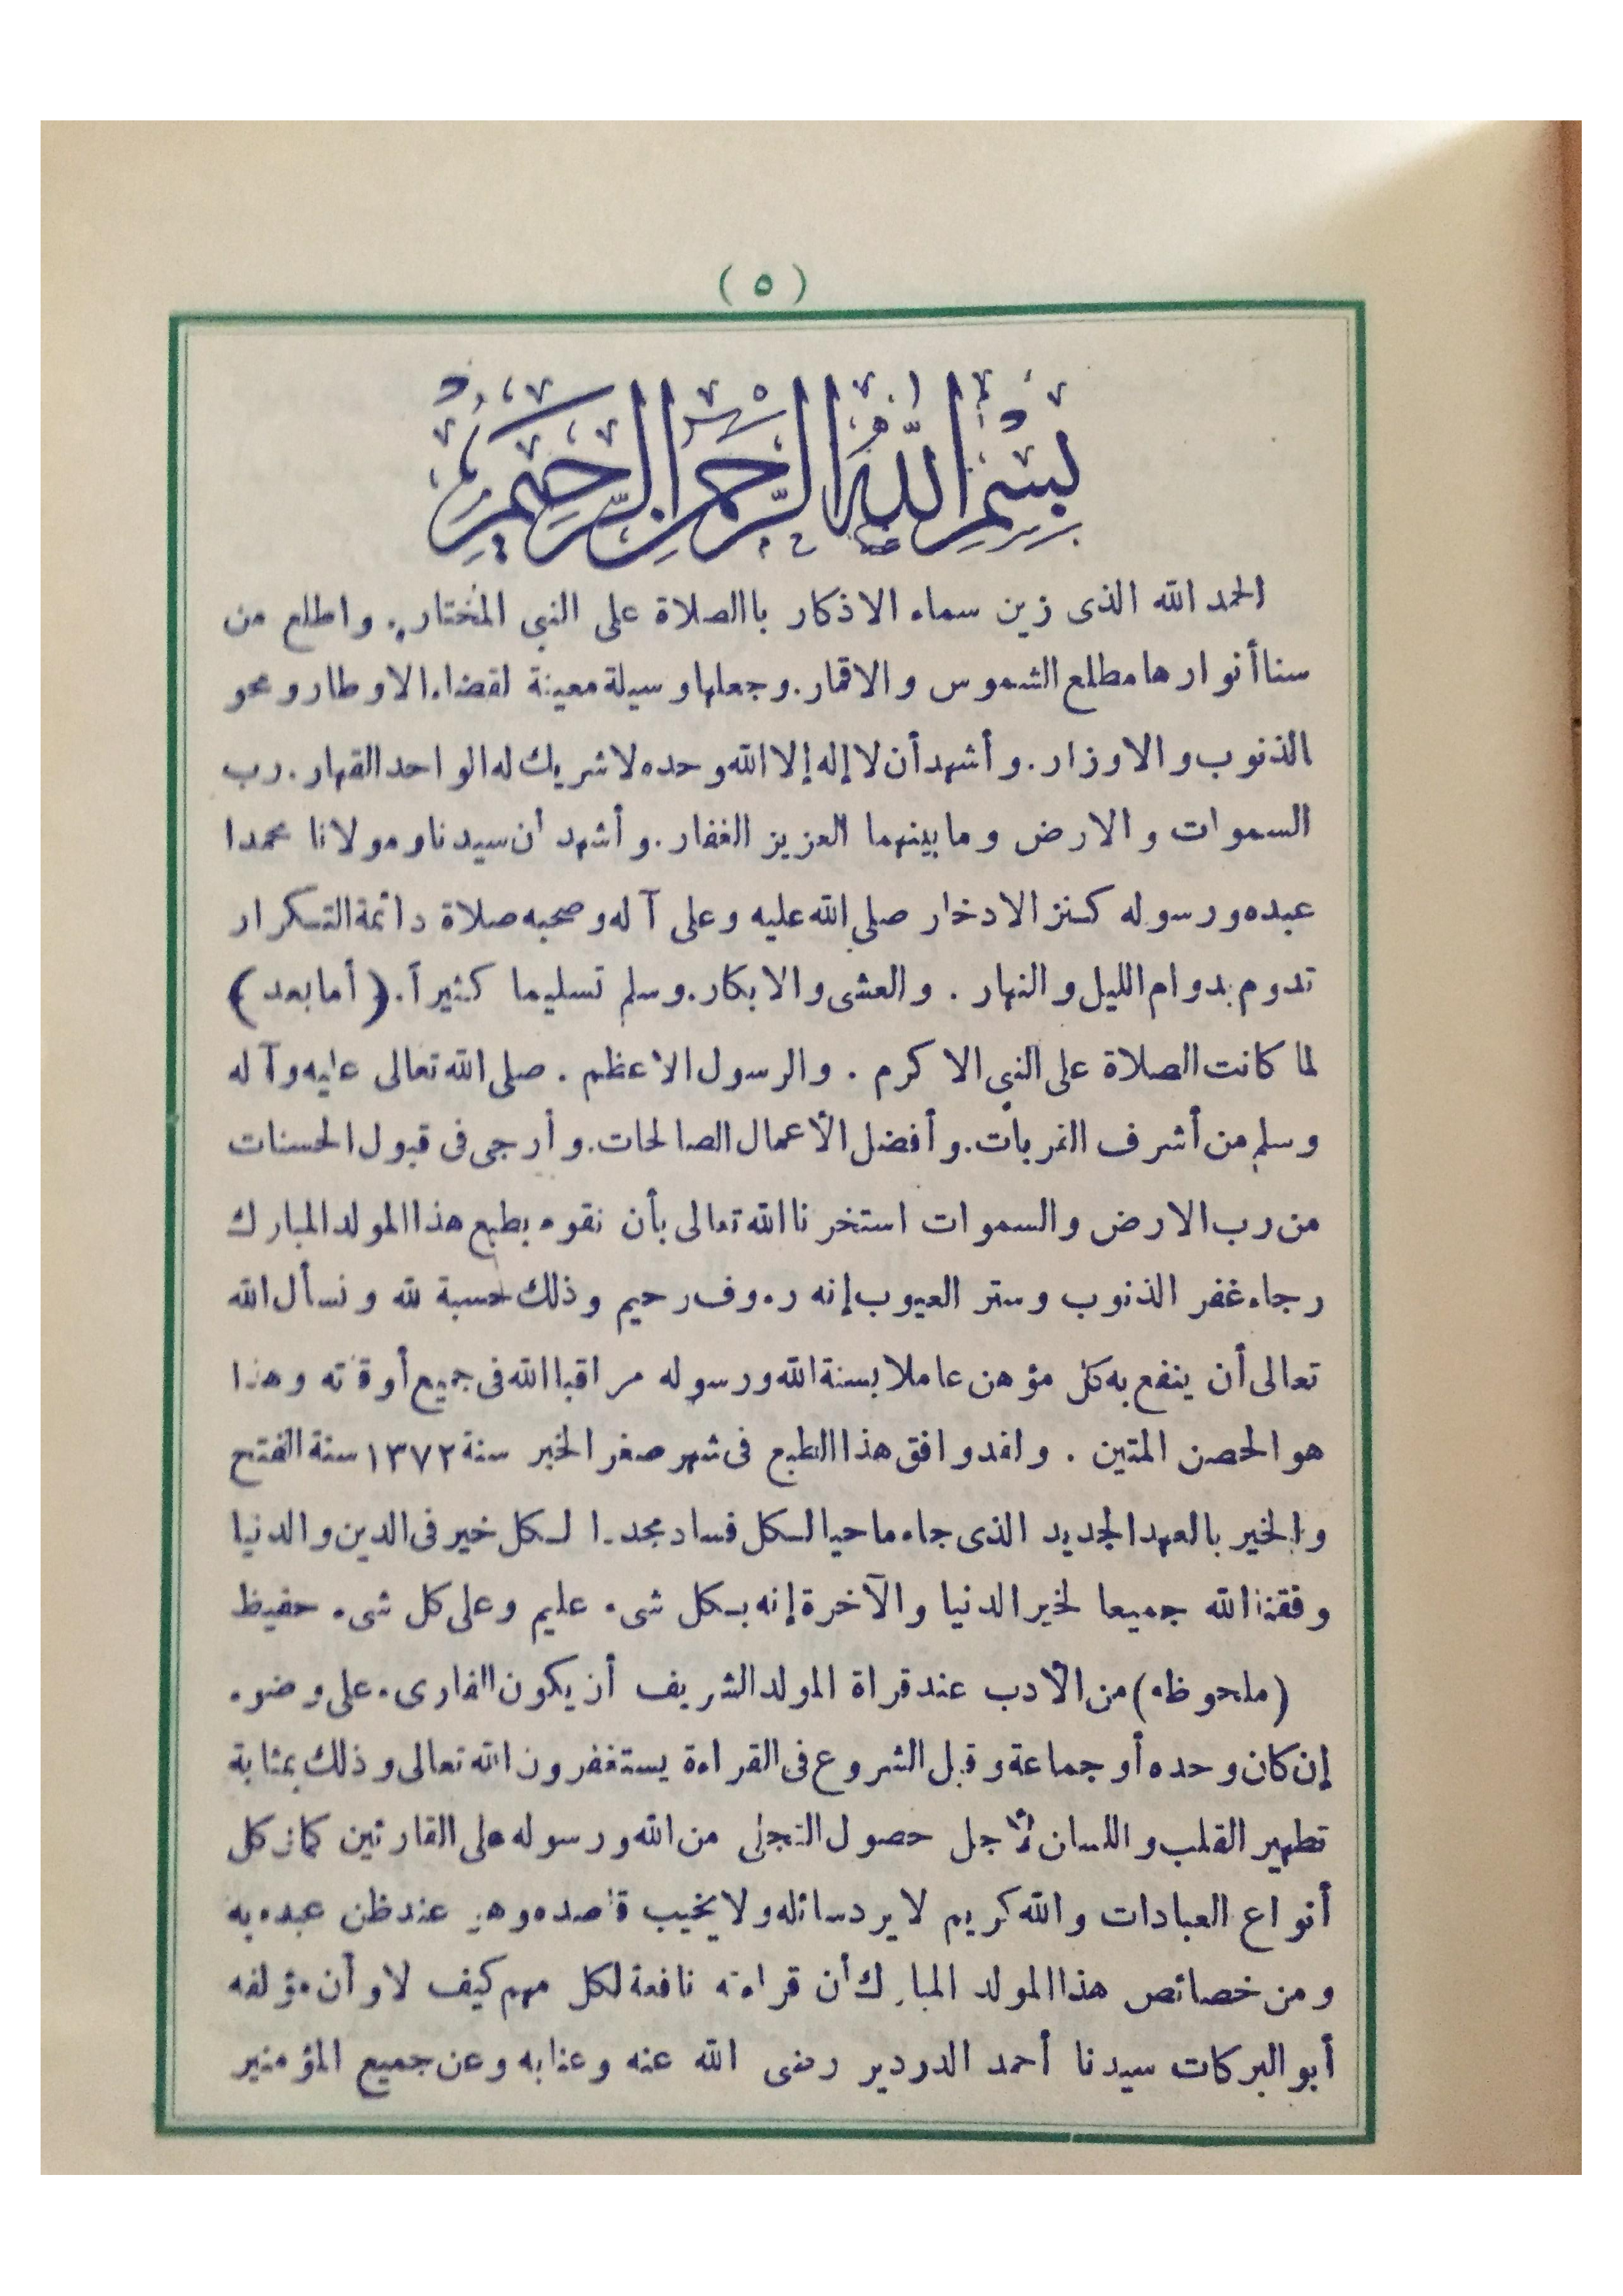 ( ٥ )
بسم الله الرحمن الرحيم
الحمد الله الذى زين سماء الاذكار باالصلاة على النبي المختار. واطلع من
سنا أنوارها مطلع الشموس والاقمار. وجعلها وسيلة معينة لقضاء الاوطار ومحو
الذنوب والاوزار. وأشهد أن لا إله إلا الله وحده لا شريك له الواحد القهار. رب
السموات والارض وما بينهما العزيز الغفار. وأشهد ان سيدنا ومولانا محمدا
عبده ورسوله كنز الادخار صلى الله عليه وعلى آله وصحبه صلاة دائمة التكرار
تدوم بدوام الليل والنهار . والعشى والابكار. وسلم تسليما كثيراً. ﴿ أما بعد ﴾
لما كانت الصلاة على النبي الاكرم . والرسول الأعظم . صلى الله تعالى عليه وآله
وسلم من أشرف القربات. وأفضل الأعمال الصالحات. وأرجى فى قبول الحسنات
من رب الارض والسموات استخرنا الله تعالى بأن نقوم بطبع هذا المولد المبارك
رجاء غفر الذنوب وستر العيوب إنه رءوف رحيم وذلك حسبة لله ونسأل الله
تعالى أن ينفع به كل مؤمن عاملا بسنة الله ورسوله مراقبا الله فى جميع أوقاته وهذا
هو الحصن المتين . ولقد وافق هذا الطبع فى شهر صفر الخير سنة ١٣٧٢ سنة الفتح
والخير بالعهد الجديد الذى جاء ماحيا لكل فساد مجددا لكل خير فى الدين والدنيا
وفقنا الله جميعا لخير الدنيا والآخرة إنه بكل شىء عليم وعلى كل شىء حفيظ
(ملحوظه) من الأدب عند قراة المولد الشريف أن يكون القارىء على وضوء
إن كان وحده أو جماعة وقبل الشروع فى القراءة يستغفرون الله تعالى وذلك بمثابة
تطهير القلب واللسان لأجل حصول التجلى من الله ورسوله على القارئين كما فى كل
أنواع العبادات والله كريم لا يرد سائله ولا يخيب قاصده وهو عند ظن عبده به
ومن خصائص هذا المولد المبارك أن قراءته نافعة لكل مهم كيف لا وأن مؤلفه
أبو البركات سيدنا أحمد الدردير رضى الله عنه وعنا به وعن جميع المؤمنين